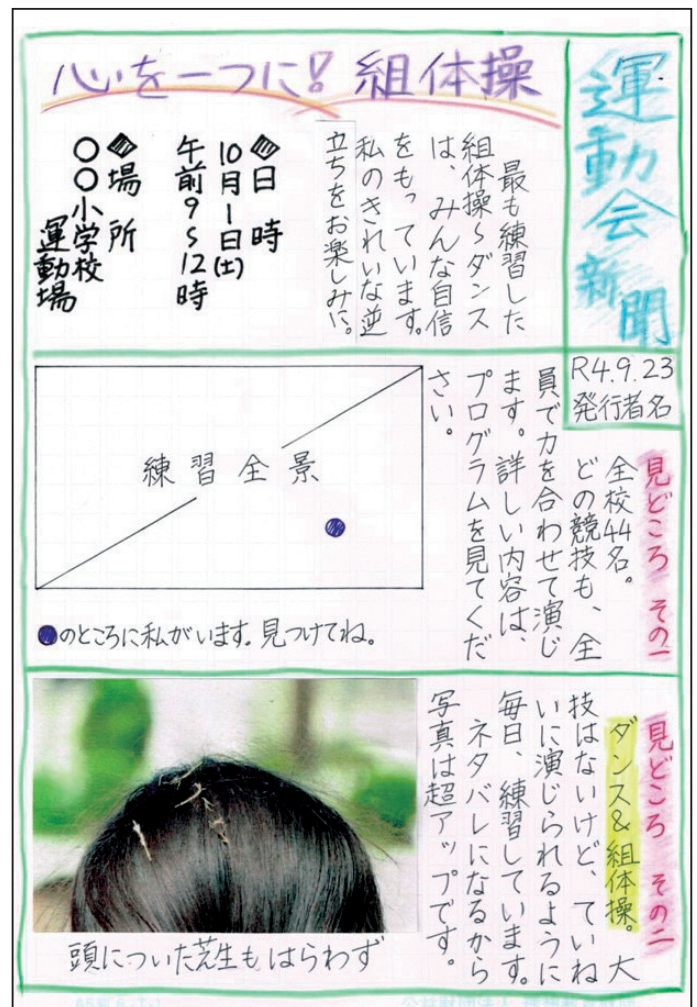 運動会新聞
R4.9.23
発行者名
心を一つに！組体操
最も練習した
組体操～ダンス
は、みんな自信
をもっています。
私のきれいな逆
立ちをお楽しみに。
◆日時
10月1日(土)
午前9～12時
◆場所
○○小学校
運動場
見どころ その一
全校44名。
どの競技も、全
員で力を合わせて演じ
ます。詳しい内容は、
プログラムを見てくだ
さい。
練習全景
●のところに私がいます。見つけてね。
見どころ その二
ダンス&組体操。大
技はないけど、ていね
いに演じられるように
毎日、練習しています。
ネタバレになるから
写真は超アップです。
頭についた芝生もはらわず